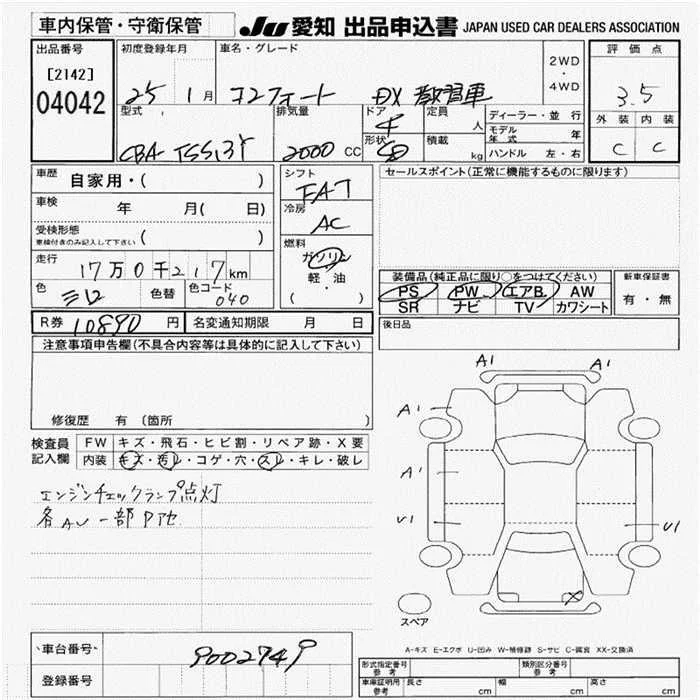 車内保管・守衛保管 JU 愛知 出品申込書 JAPAN USED CAR DEALERS ASSOCIATION
出品番号 初度登録年月 車名・グレード 2WD・4WD 評価点
[2142] 04042 25 1月 コンフォート DX 教習車 3.5
型式 排気量 ドア 定員 ディーラー・並行 外装 内装
CBA- TSS13Y 2000 CC 4 人 モデル年式 年
形状 SD 積載 kg ハンドル 左・右 C C
車歴 自家用・( ) シフト FAT セールスポイント(正常に機能するものに限ります)
車検 年 月( 日) 冷房 AC
受検形態 車検付きのみ記入して下さい ( )
燃料 ガソリン 軽・油 ( )
走行 17万0千217km
装備品(純正品に限り○をつけてください) 新車保証書
色 色替 色コード 040
PS PW エアB. AW 有・無
SR ナビ TV カワシート
R券 10890 円 名変通知期限 月 日 後日品
注意事項申告欄(不具合内容等は具体的に記入して下さい)
修復歴 有 〔箇所 〕
検査員記入欄 FW キズ・飛石・ヒビ割・リペア跡・X要
内装 キズ・汚レ・コゲ・穴・スレ・キレ・破レ
エンジンチェックランプ点灯
各AU一部P他
A1 A1
A1
A1
U1 U1
X
スペア
A-キズ E-エクボ U-凹み W-補修跡 S-サビ C-腐食 XX-交換済
車台番号 9002749
登録番号
形式指定番号 参考 類別区分番号 参考
車庫証明用 参考 長さ cm 幅 cm 高さ cm